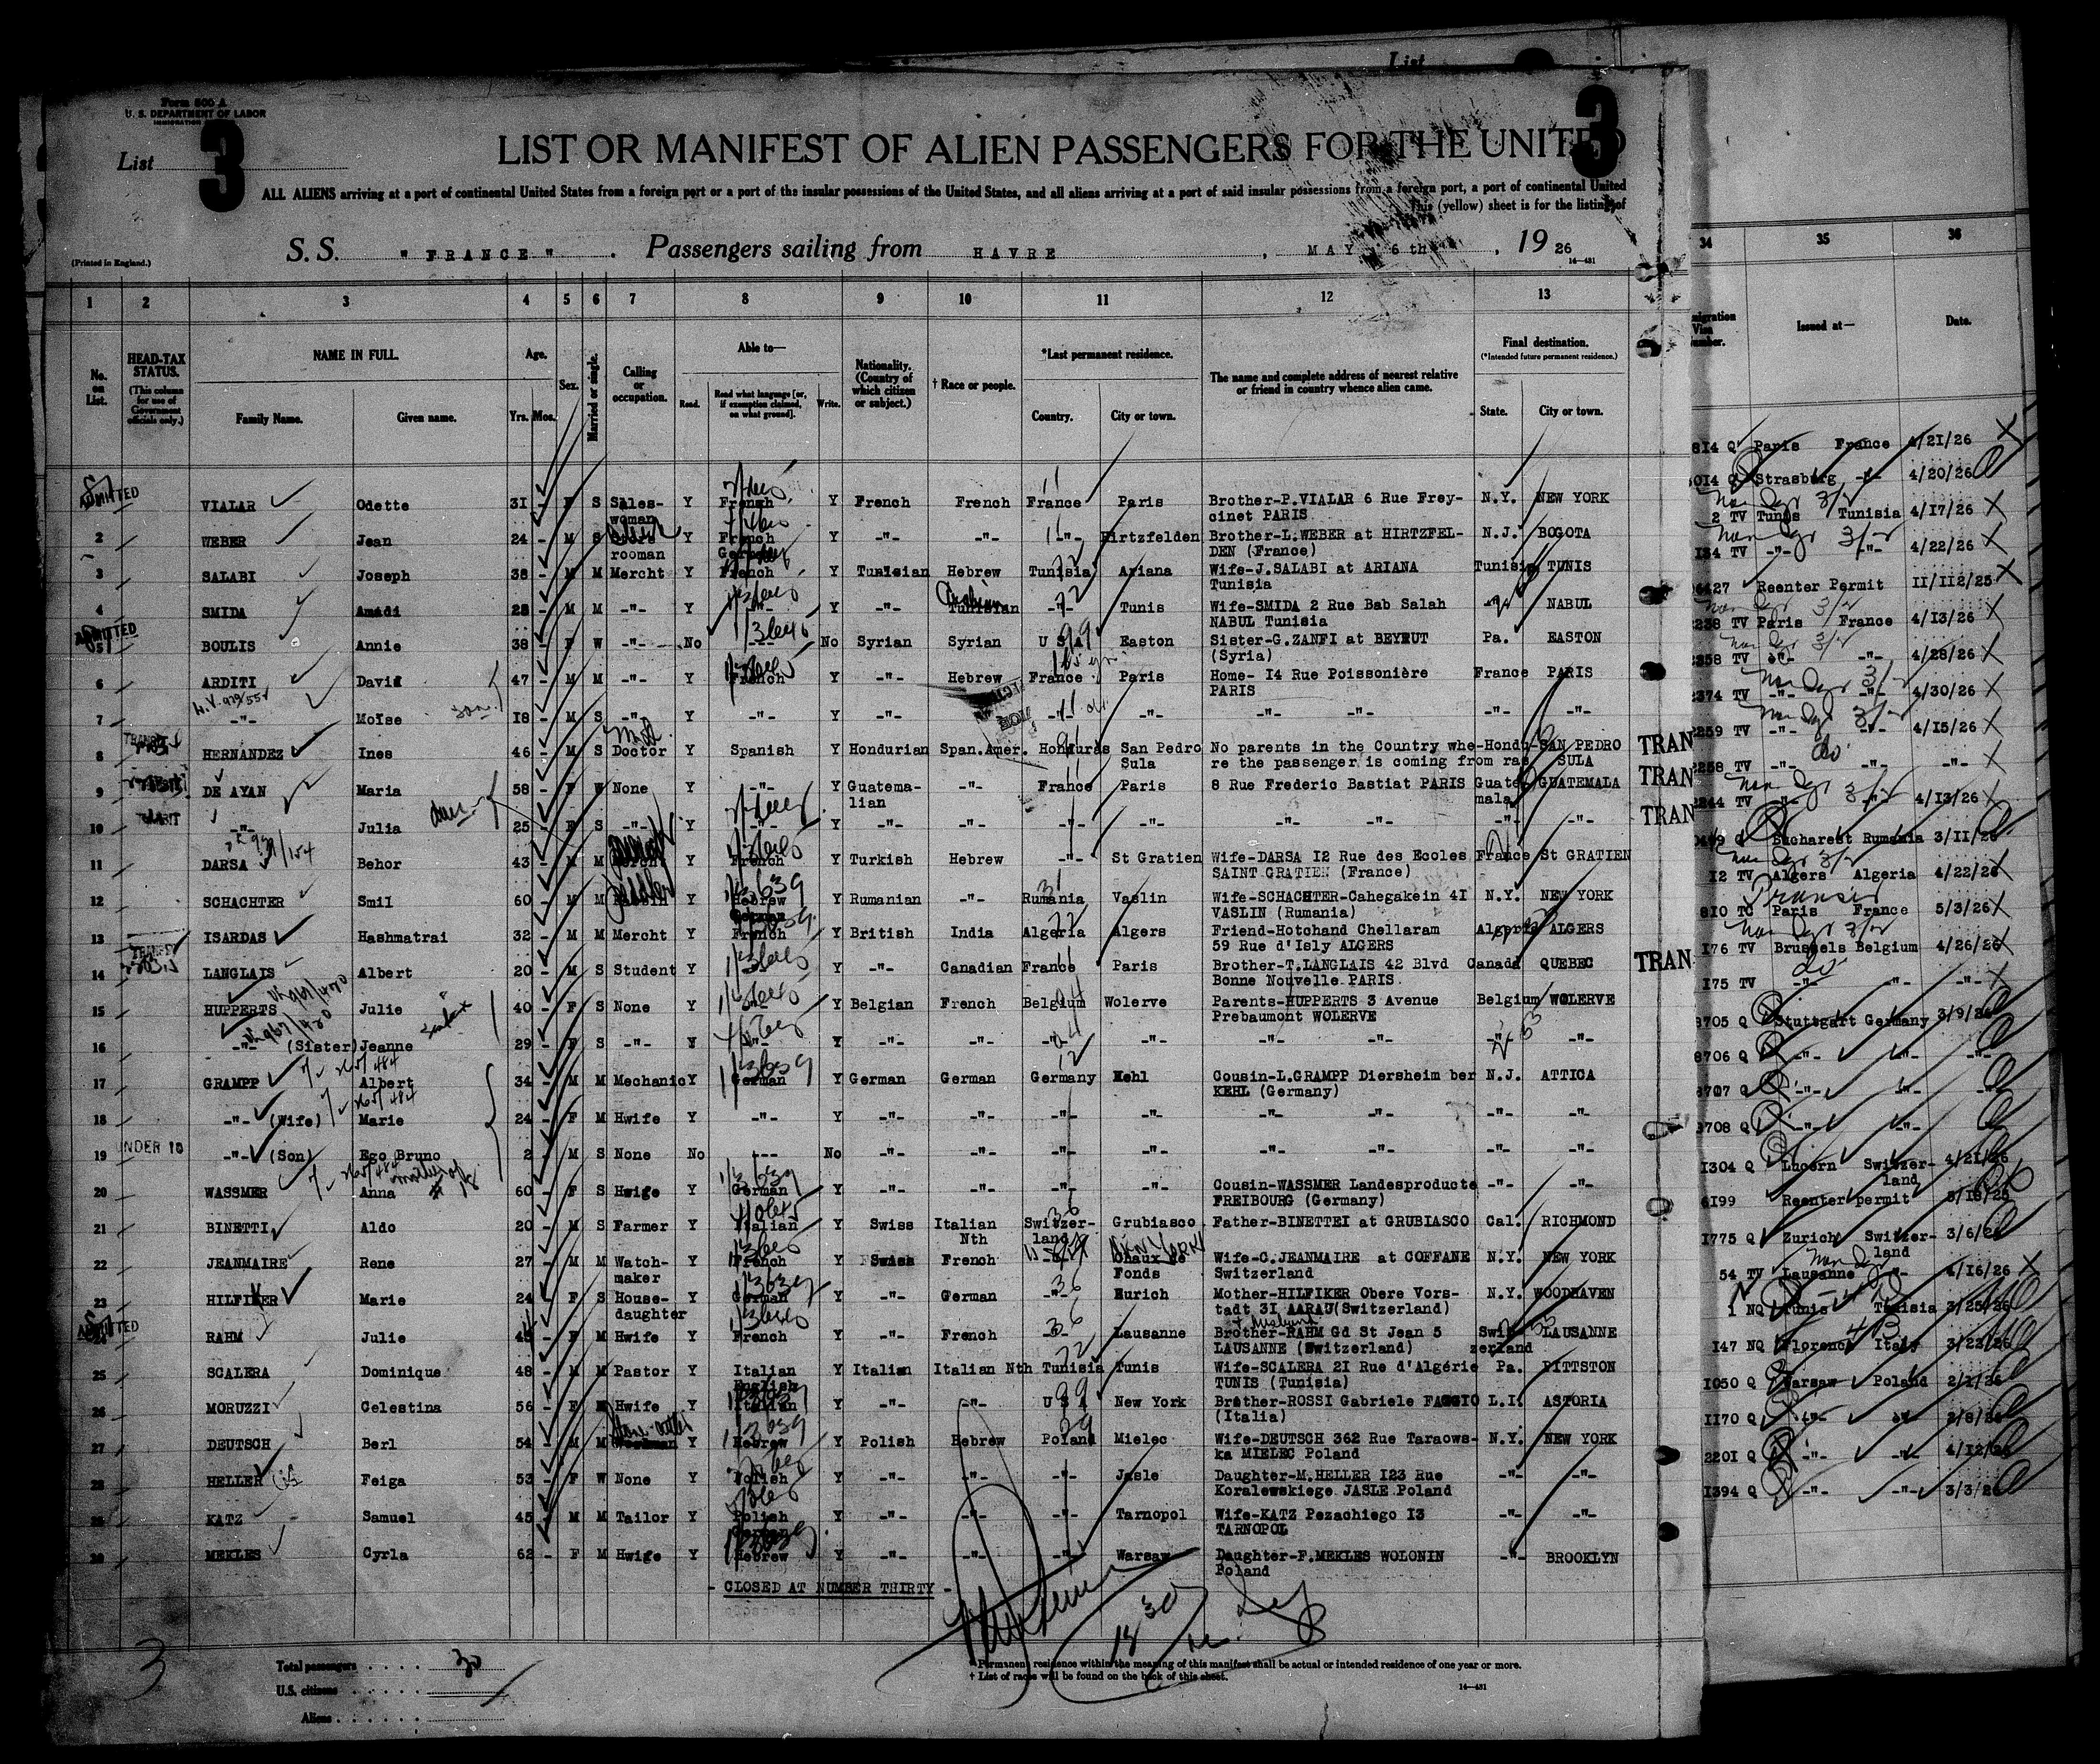 List
Form 500 A
U. S. DEPARTMENT OF LABOR
IMMIGRATION
List 3
3
LIST OR MANIFEST OF ALIEN PASSENGERS FOR THE UNITED
ALL ALIENS arriving at a port of continental United States from a foreign port or a port of the insular possessions of the United States, and all aliens arriving at a port of said insular possessions from a foreign port, a port of continental United
This (yellow) sheet is for the listing of
S. S. " FRANCE " . Passengers sailing from HAVRE , MAY 6 th , 19 26
(Printed in England.)
14—481
1 2 3 4 5 6 7 8 9 10 11 12 13 34 35 36
No. on List. HEAD-TAX STATUS. (This column for use of Government officials only.) NAME IN FULL. Family Name. Given name. Age. Yrs. Mos. Sex. Married or single. Calling or occupation. Able to— Read. Read what language [or, if exemption claimed, on what ground]. Write. Nationality. (Country of which citizen or subject.) † Race or people. *Last permanent residence. Country. City or town. The name and complete address of nearest relative or friend in country whence alien came. Final destination. (*Intended future permanent residence.) State. City or town. Issued at— Date.
ADMITTED VIALAR Odette 31 - F S Sales- Y French Y French French France Paris Brother-P.VIALAR 6 Rue Frey- N.Y. NEW YORK
woman cinet PARIS
2 WEBER Jean 24 - M S Y French Y -"- -"- -"- Hirtzfelden Brother-L.WEBER at HIRTZFEL- N.J. BOGOTA
rooman German DEN (France)
3 SALABI Joseph 38 - M M Mercht Y French Y Tunisian Hebrew Tunisia Ariana Wife-J.SALABI at ARIANA Tunisia TUNIS
Tunisia
4 SMIDA Amadi 28 - M M -"- Y -"- Y -"- Tunisian -"- Tunis Wife-SMIDA 2 Rue Bab Salah -"- NABUL
NABUL Tunisia
ADMITTED
5 BOULIS Annie 38 - F W -"- No -"- No Syrian Syrian U S A Easton Sister-G.ZANFI at BEYRUT Pa. EASTON
(Syria)
6 ARDITI David 47 - M M -"- Y French Y -"- Hebrew France Paris Home- 14 Rue Poissonière France PARIS
PARIS
7 -"- Moïse son 18 - M S -"- Y -"- Y -"- -"- -"- -"- -"- -"- -"-
8 HERNANDEZ Ines 46 - M S Doctor Y Spanish Y Hondurian Span.Amer. Honduras San Pedro No parents in the Country whe- Hondu- SAN PEDRO TRAN
Sula re the passenger is coming from ras SULA
9 DE AYAN Maria 58 - F W None Y -"- Y Guatema- -"- France Paris 8 Rue Frederic Bastiat PARIS Guate- GUATEMALA TRAN
lian mala
10 -"- Julia 25 - F S -"- Y -"- Y -"- -"- -"- -"- -"- -"- -"- -"- TRAN
11 DARSA Behor 43 - M M Mercht Y French Y Turkish Hebrew -"- St Gratien Wife-DARSA 12 Rue des Ecoles France St GRATIEN
SAINT GRATIEN (France)
12 SCHACHTER Smil 60 - M M Y Hebrew Y Rumanian -"- Rumania Vaslin Wife-SCHACHTER-Cahegakein 41 N.Y. NEW YORK
German VASLIN (Rumania)
13 ISARDAS Hashmatrai 32 - M M Mercht Y French Y British India Algeria Algers Friend-Hotchand Chellaram Algeria ALGERS
59 Rue d'Isly ALGERS
14 LANGLAIS Albert 20 - M S Student Y -"- Y -"- Canadian France Paris Brother-T.LANGLAIS 42 Blvd Canada QUEBEC TRAN
Bonne Nouvelle PARIS
15 HUPPERTS Julie 40 - F S None Y -"- Y Belgian French Belgium Wolerve Parents-HUPPERTS 3 Avenue Belgium WOLERVE
Prebaumont WOLERVE
16 -"- (Sister) Jeanne 29 - F S -"- Y -"- Y -"- -"- -"- -"- -"- -"- -"- -"-
17 GRAMPP Albert 34 - M M Mechanic Y German Y German German Germany Kehl Cousin-L.GRAMPP Diersheim ber N.J. ATTICA
KEHL (Germany)
18 -"- (Wife) Marie 24 - F M Hwife Y -"- Y -"- -"- -"- -"- -"- -"- -"- -"-
19 NDER 16 -"- (Son) Ego Bruno 2 - M S None No --- No -"- -"- -"- -"- -"- -"- -"- -"-
20 WASSMER Anna 60 - F S Hwige Y German Y -"- -"- -"- -"- Cousin-WASSMER Landesproducte -"- -"-
FREIBOURG (Germany)
21 BINETTI Aldo 20 - M S Farmer Y Italian Y Swiss Italian Switzer- Grubiasco Father-BINETTEI at GRUBIASCO Cal. RICHMOND
Nth land
22 JEANMAIRE Rene 27 - M M Watch- Y French Y Swiss French NEW YORK Chaux de Wife-C.JEANMAIRE at COFFANE N.Y. NEW YORK
maker Fonds Switzerland
23 HILFIKER Marie 24 - F S House- Y German Y -"- German -"- Zurich Mother-HILFIKER Obere Vors- N.Y. WOODHAVEN
daughter tadt 31 AARAU(Switzerland)
ADMITTED RAHM Julie 45 - F M Hwife Y French Y -"- French -"- Lausanne Brother-RAHM Gd St Jean 5 Swit- LAUSANNE
LAUSANNE (Switzerland) zerland
25 SCALERA Dominique 48 - M M Pastor Y Italian Y Italian Italian Nth Tunisia Tunis Wife-SCALERA 21 Rue d'Algérie Pa. PITTSTON
English TUNIS (Tunisia)
26 MORUZZI Celestina 56 - F M Hwife Y Italian Y -"- -"- U S A New York Brother-ROSSI Gabriele FAGGIO L.I. ASTORIA
(Italia)
27 DEUTSCH Berl 54 - M M Y Hebrew Y Polish Hebrew Poland Mielec Wife-DEUTSCH 362 Rue Taraows- N.Y. NEW YORK
ka MIELEC Poland
28 HELLER Feiga 53 - F W None Y Polish Y -"- -"- -"- Jasle Daughter-M.HELLER 123 Rue -"- -"-
Koralewskiege JASLE Poland
29 KATZ Samuel 45 - M M Tailor Y Polish Y -"- -"- -"- Tarnopol Wife-KATZ Pezachiego 13 -"- -"-
German TARNOPOL
30 MEKLES Cyrla 62 - F M Hwige Y Hebrew Y -"- -"- -"- Warsaw Daughter-F.MEKLES WOLONIN -"- BROOKLYN
Poland
- CLOSED AT NUMBER THIRTY -
3
Total passengers . . . . 30
U.S. citizens . . . . .
Aliens . . . . . .
* Permanent residence within the meaning of this manifest shall be actual or intended residence of one year or more.
† List of races will be found on the back of this sheet.
14—481
814 Q Paris France 4/21/26
014 Q Strasburg -"- 4/20/26
2 TV Tunis Tunisia 4/17/26
134 TV -"- -"- 4/22/26
6427 Reenter Permit 11/112/25
2238 TV Paris France 4/13/26
2258 TV -"- -"- 4/28/26
2374 TV -"- -"- 4/30/26
2259 TV -"- -"- 4/15/26
2258 TV -"- -"- -"-
2244 TV -"- -"- 4/13/26
Bucharest Rumania 3/11/26
12 TV Algers Algeria 4/22/26
Transit
810 TC Paris France 5/3/26
176 TV Brussels Belgium 4/26/26
175 TV -"- -"- -"-
8705 Q Stuttgart Germany 3/9/26
8706 Q -"- -"- -"-
8707 Q -"- -"- -"-
8708 Q -"- -"-
1304 Q Lucern Switzer- 4/21/26
land
6199 Reenter permit
1775 Q Zurich Switzer- 3/6/26
land
54 TV Lausanne -"- 4/16/26
1 NQ Tunis Tunisia 3/25/26
147 NQ Florence Italy 3/22/26
1050 Q Warsaw Poland 2/1/26
1170 Q -"- -"- 2/8/26
2201 Q -"- -"- 4/12/26
1394 Q -"- -"- 3/3/26